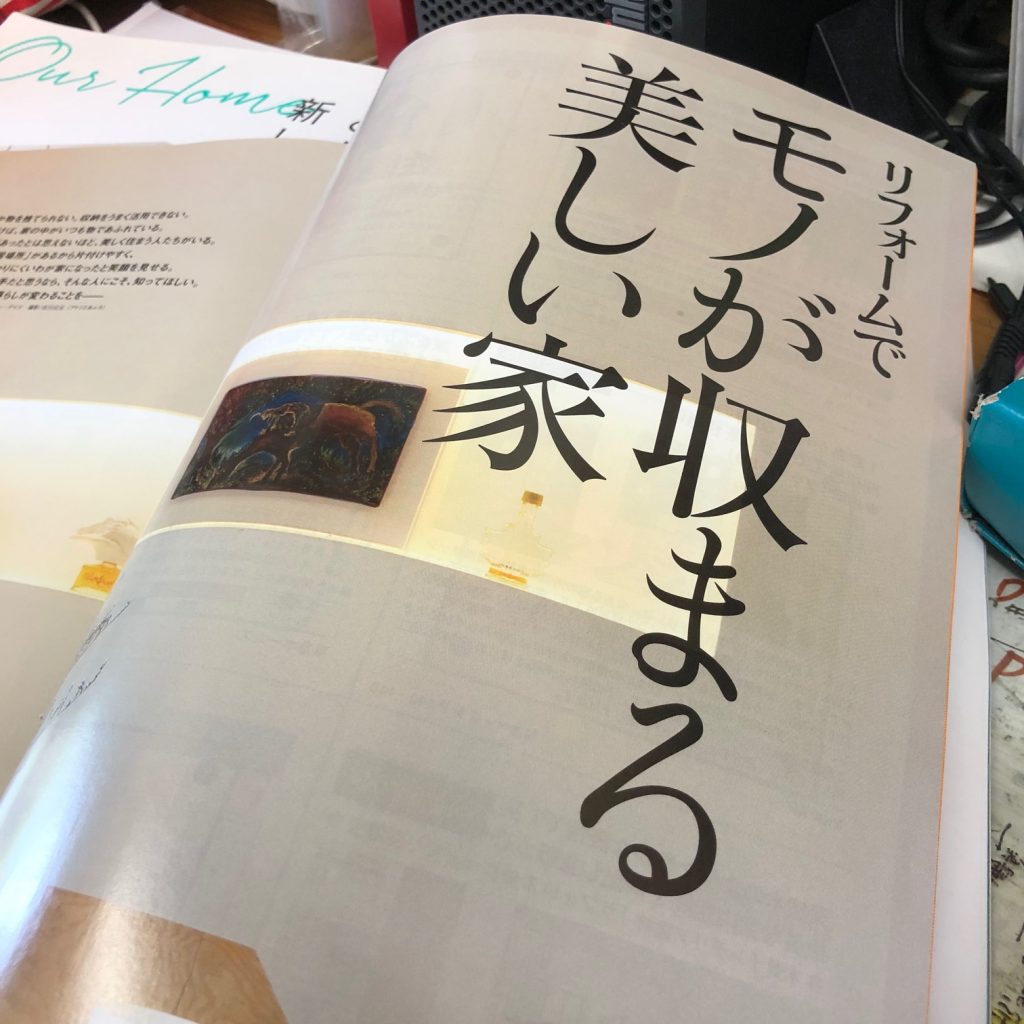 リフォームで
モノが収まる
美しい家
Our Home
新
物を捨てられない。収納をうまく活用できない。
ば、家の中がいつも物であふれている。
あったとは思えないほど、美しく住まう人たちがいる。
場所」があるから片付けやすく、
りにくいわが家になったと笑顔を見せる。
手だと思うなら、そんな人にこそ、知ってほしい。
らしが変わることを——